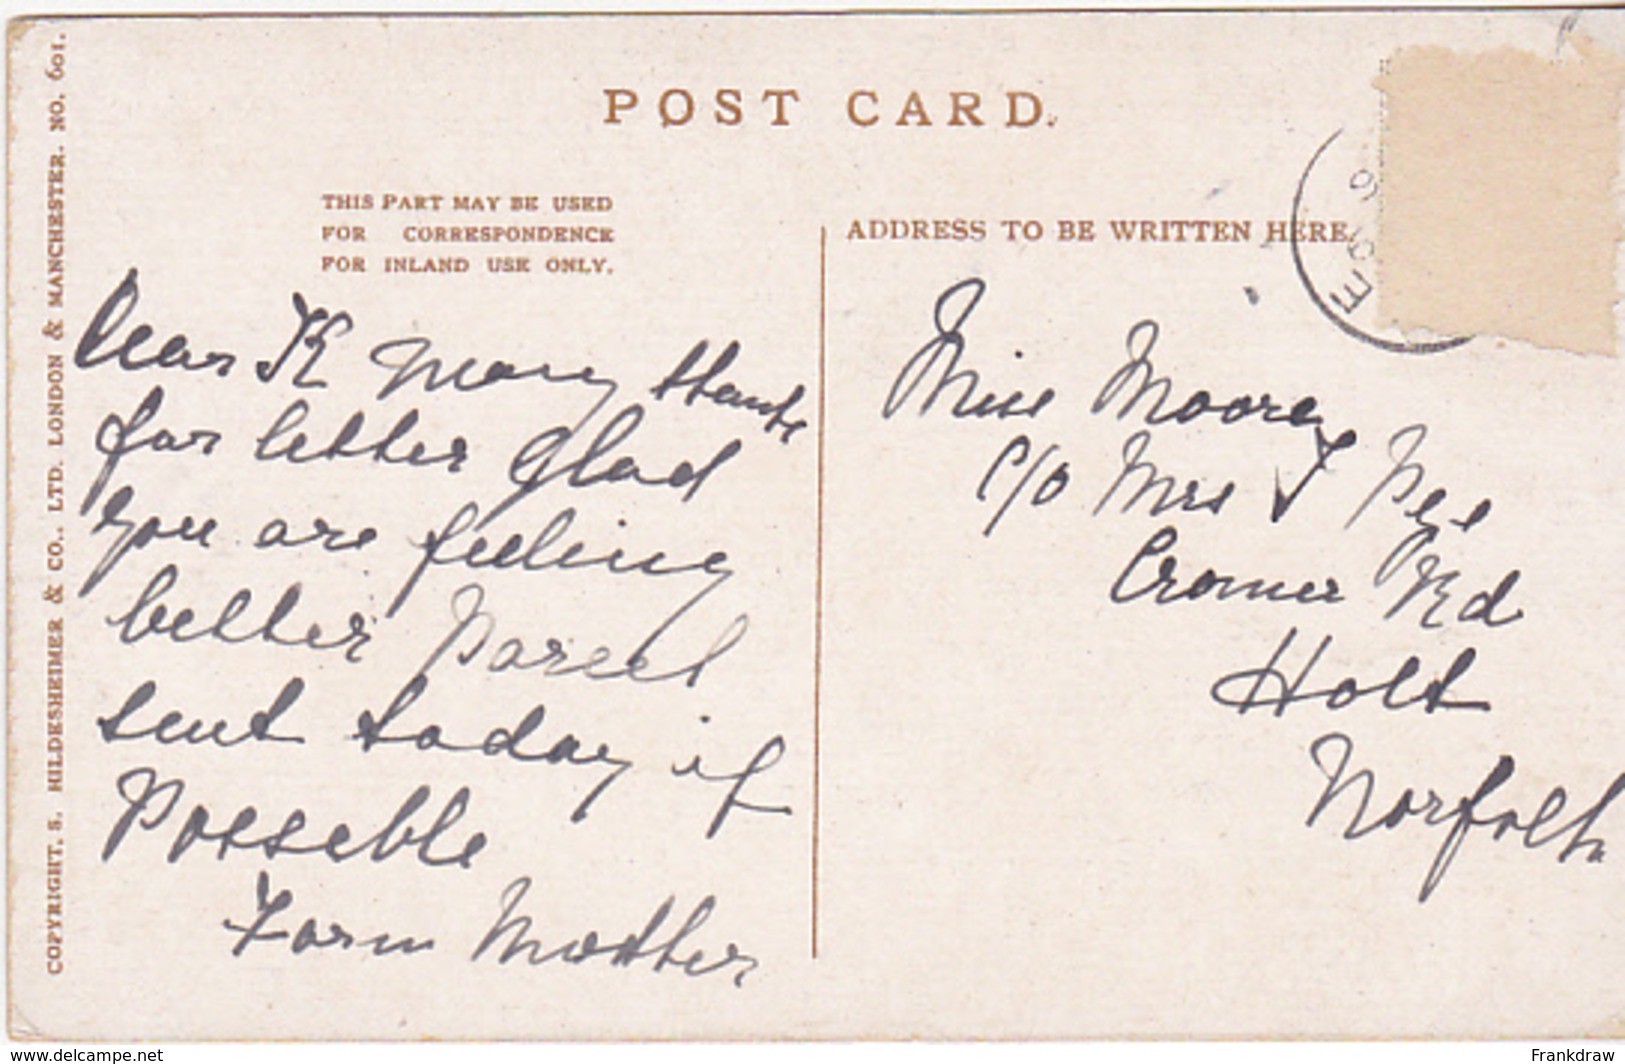 POST CARD.
THIS PART MAY BE USED
FOR CORRESPONDENCE
FOR INLAND USE ONLY.
ADDRESS TO BE WRITTEN HERE.
COPYRIGHT, S. HILDESHEIMER & CO., LTD. LONDON & MANCHESTER. NO. 601.
Dear K many thanks
for letter glad
you are feeling
better Parcel
sent today if
Posseble
Form Mother
Miss Moore
c/o Mrs J Pye
Cromer Rd
Holt
Norfolk
www.delcampe.net
Frankdraw